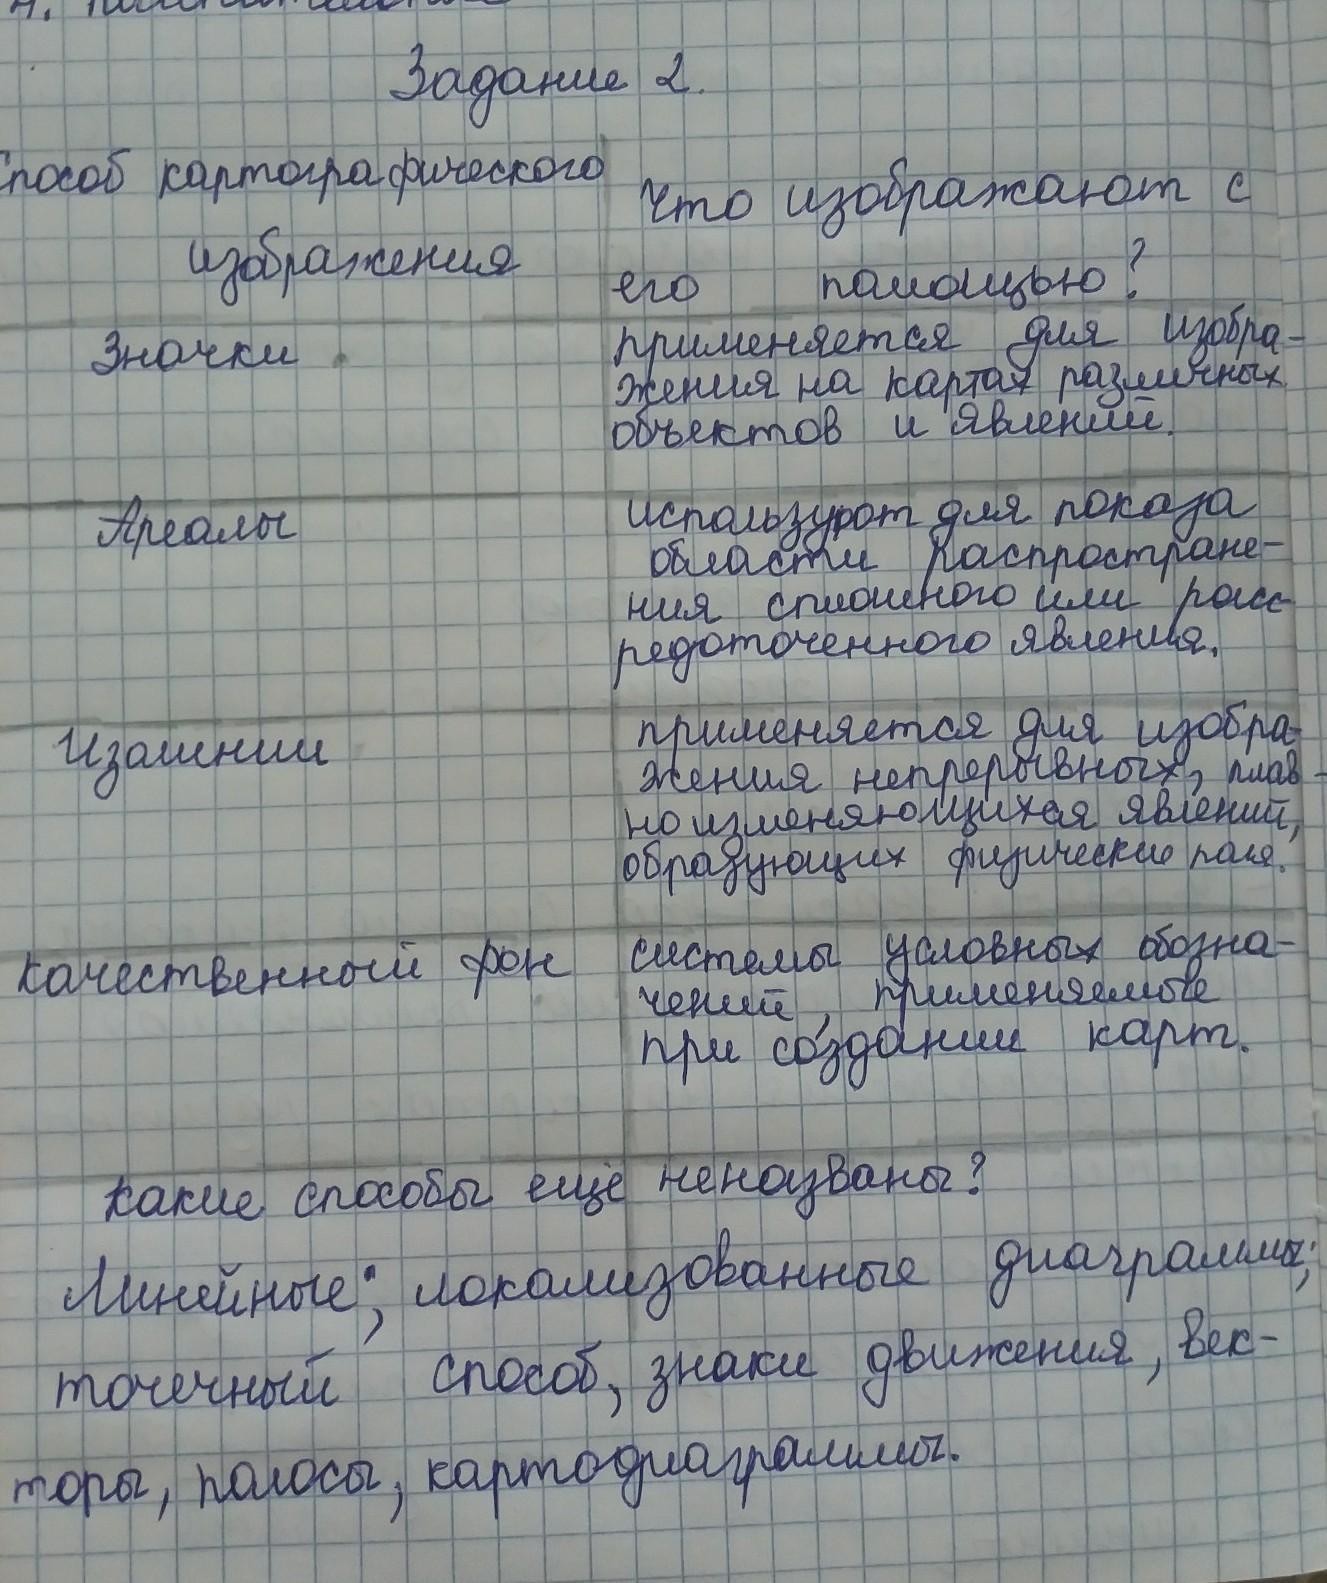 Задание 2.
Способ картографического
изображения
Что изображают с
его помощью?
Значки
применяется для изобра-
жения на картах различных
объектов и явлений.
Ареалы
используют для показа
области распростране-
ния сплошного или расс
редоточенного явления.
Изолинии
применяется для изобра-
жения непрерывных, плав-
но изменяющихся явлений,
образующих физические поля.
Качественный фон
системы условных обозна-
чений, применяемые
при создании карт.
Какие способы еще неназваны?
Линейные; локализованные диаграммы;
точечный способ, знаки движения, век-
торы, полосы, картодиаграммы.